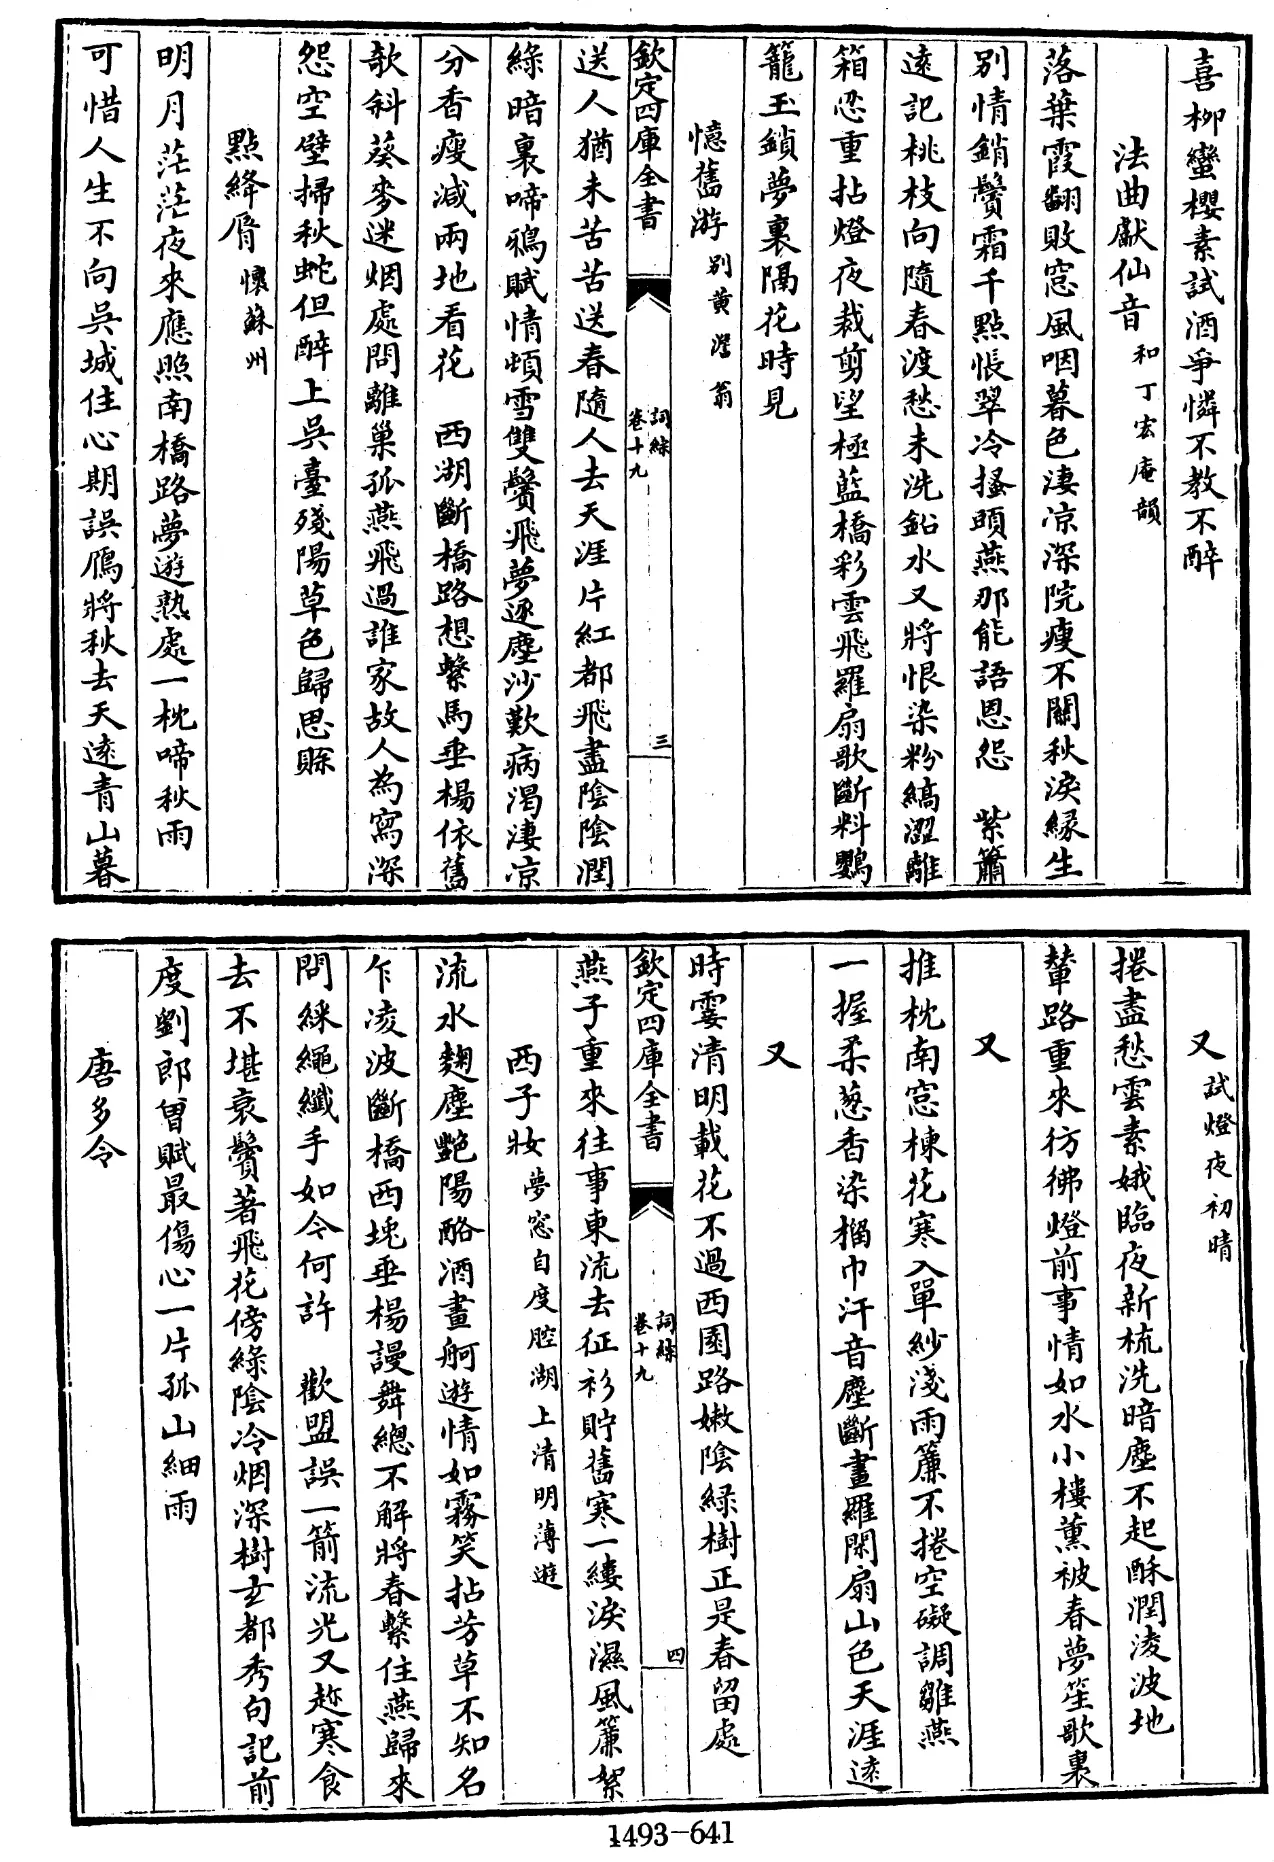 喜柳蠻櫻素試酒爭憐不教不醉
法曲獻仙音和丁宏庵韻
落葉霞翻敗窓風咽暮色淒凉深院瘦不關秋淚緣生
別情銷鬢霜千點悵翠冷搔頭燕那能語恩怨　紫簫
遠記桃枝向隨春渡愁未洗鉛水又將恨染粉縞澀離
箱忍重拈燈夜裁剪望極藍橋彩雲飛羅扇歌斷料鸚
籠玉鎖夢裏隔花時見
憶舊游別黃澹翁
欽定四庫全書
詞綜
卷十九
三
送人猶未苦苦送春隨人去天涯片紅都飛盡陰陰潤
綠暗裏啼鴉賦情頓雪雙鬢飛夢逐塵沙歎病渴淒凉
分香瘦減兩地看花　西湖斷橋路想繫馬垂楊依舊
欹斜葵麥迷烟處問離巢孤燕飛過誰家故人為寫深
怨空壁掃秋蛇但醉上吳臺殘陽草色歸思賖
點絳脣懷蘇州
明月茫茫夜來應照南橋路夢遊熟處一枕啼秋雨
可惜人生不向吳城住心期誤鴈將秋去天遠青山暮
又試燈夜初晴
捲盡愁雲素娥臨夜新梳洗暗塵不起酥潤淩波地
輦路重來彷彿燈前事情如水小樓薰被春夢笙歌裏
又
推枕南窓楝花寒入單紗淺雨簾不捲空礙調雛燕
一握柔葱香染榴巾汗音塵斷畫羅閑扇山色天涯遠
又
時霎清明載花不過西園路嫩陰綠樹正是春留處
欽定四庫全書
詞綜
卷十九
四
燕子重來往事東流去征衫貯舊寒一縷淚濕風簾絮
西子妝夢窓自度腔湖上清明薄遊
流水麴塵艶陽酪酒畫舸遊情如霧笑拈芳草不知名
乍凌波斷橋西堍垂楊謾舞總不解將春繫住燕歸來
問綵繩纖手如今何許　歡盟誤一箭流光又趂寒食
去不堪衰鬢著飛花傍綠陰冷烟深樹玄都秀句記前
度劉郎曾賦最傷心一片孤山細雨
唐多令
1493-641